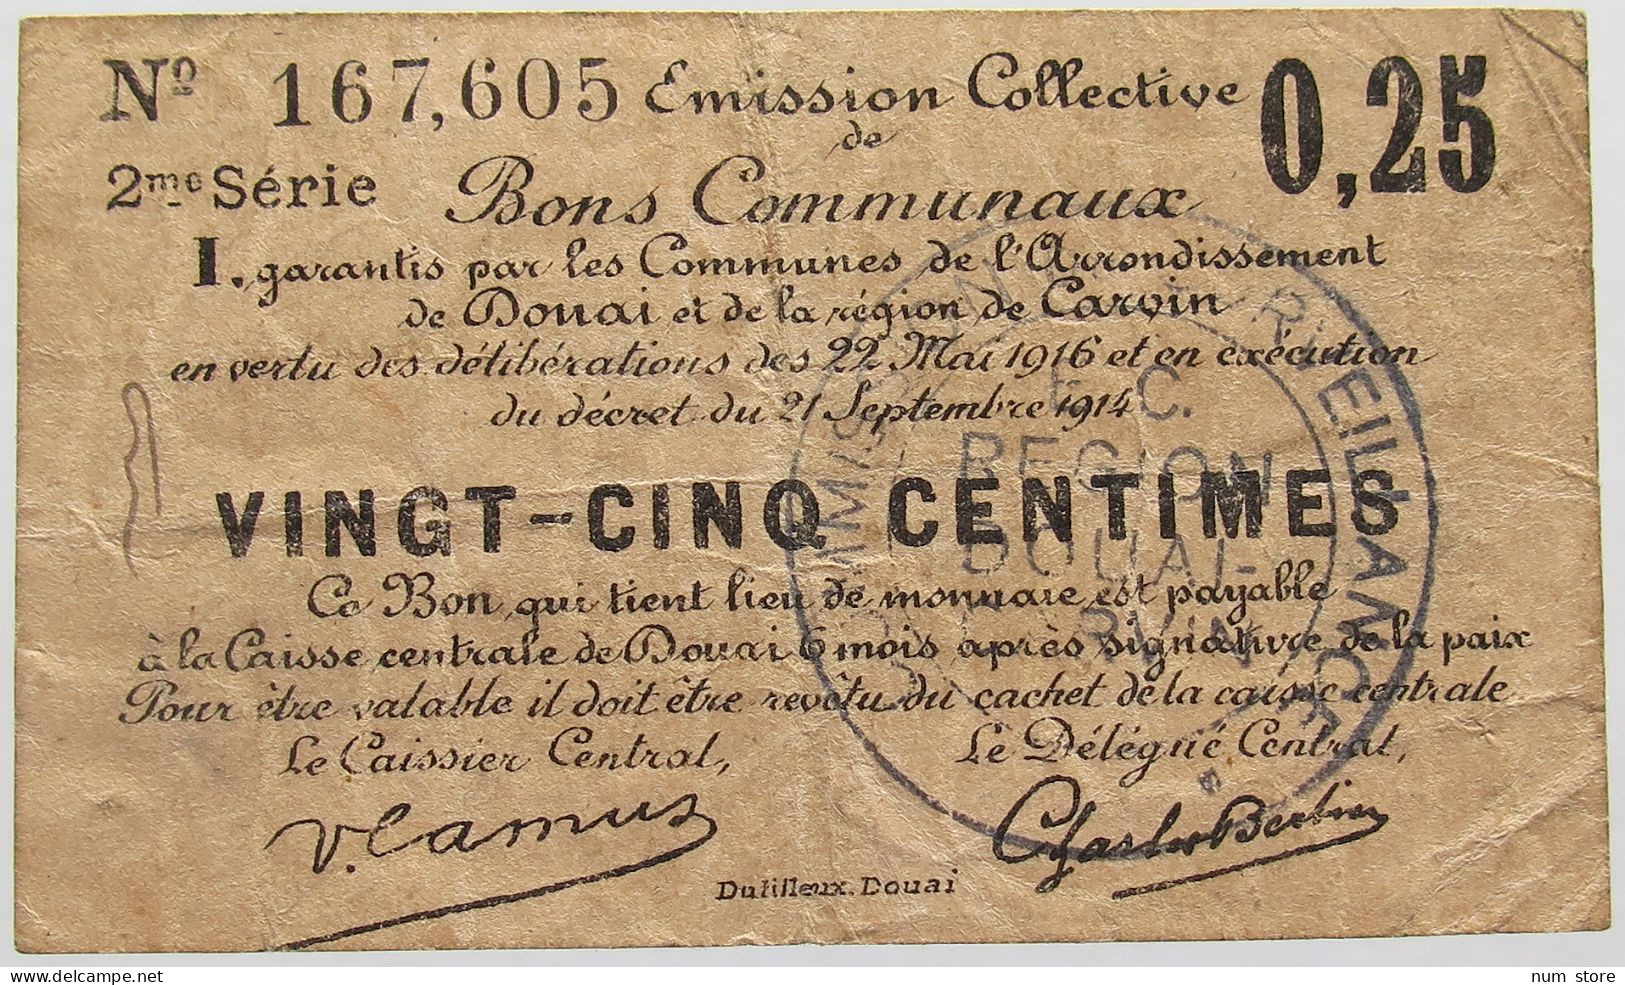 Nº 167,605 Emission Collective 0,25
de
2me Série Bons Communaux
I. garantis par les Communes de l'Arrondissement
de Douai et de la région de Carvin
en vertu des délibérations des 22 Mai 1916 et en exécution
du décret du 21 Septembre 1914
VINGT-CINQ CENTIMES
Ce Bon, qui tient lieu de monnaie, est payable
à la Caisse centrale de Douai 6 mois après signature de la paix
Pour être valable il doit être revêtu du cachet de la caisse centrale
Le Caissier Central, Le Délégué Central,
V. Camus Charles Bertin
Dutilleux. Douai
SURVEILLANCE
E. C.
REGION
DOUAI-
num store